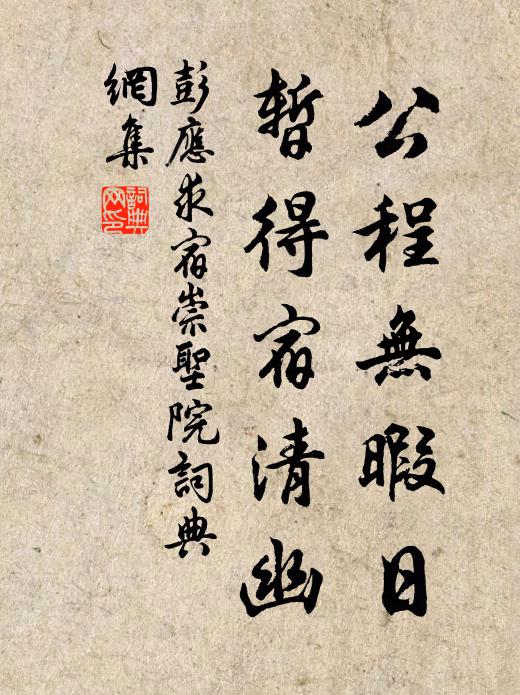 公程無暇日
暫得宿清幽
彭應求宿崇聖院詞典
網集
詞典
网印